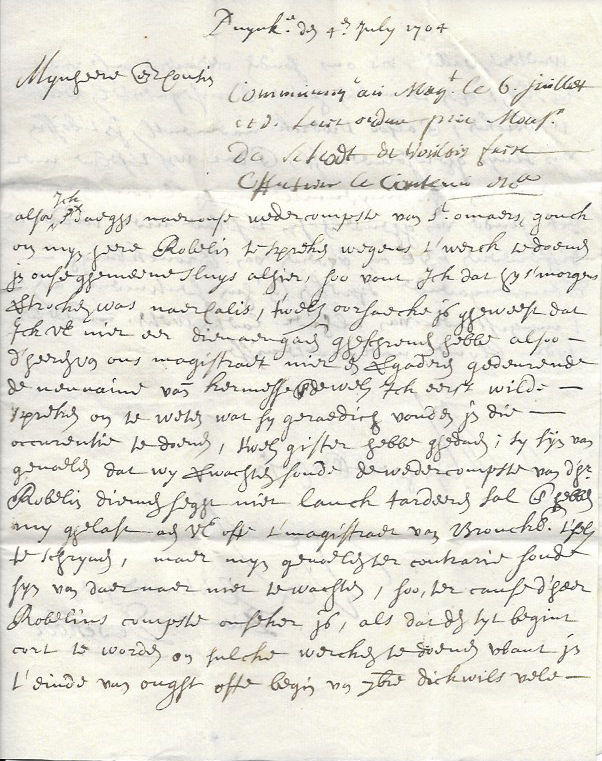 Duynk.e den 4.en July 1704
Mynheere ende Cousin
Communiq.é au Mag.t le 6. juillet
et d. leur ordon prie Mons.r
De Schodt de vouloir faire
effectuer le contenu
Ick
alsoo s'daeghs naer onse wedercompste van S.t omaers, gonck
om myn heere Robelin te spreken wegens t'werck te doenen
in onse ghemeene sluys alhier, soo vont Ick dat hy s'morgens
vertrocken was naer Calis, t'welck oorsaecke is gheweest dat
Ick UE niet eer dienaengaende ghescreven hebbe alsoo
d'heeren van ons magistraet niet en vergaderen gedeurende
de neuvaine van kermesse de welcke Ick eerst wilde
spreken om te weten wat sy geraedich vonden in die
occurentie te doenen, t'welck gister hebbe ghedaen; sy syn van
gevoelen dat wy verwachten soude de wedercompste van d'hr
Robelin diemen seght niet lanck tarderen sal en hebben
my ghelast aen UE ofte t'magistraet van Brouckb. t'selve
te schryven, maer myn gevoelen ter contrarie soude
syn van daer naer niet te wachten, soo, ter cause d'heer
Robelins compste onseker is, als dat den tyt begint
cort te worden om sulcke wercken te doenen want in
t'einde van ougst ofte begin van 7bre dickwils vele